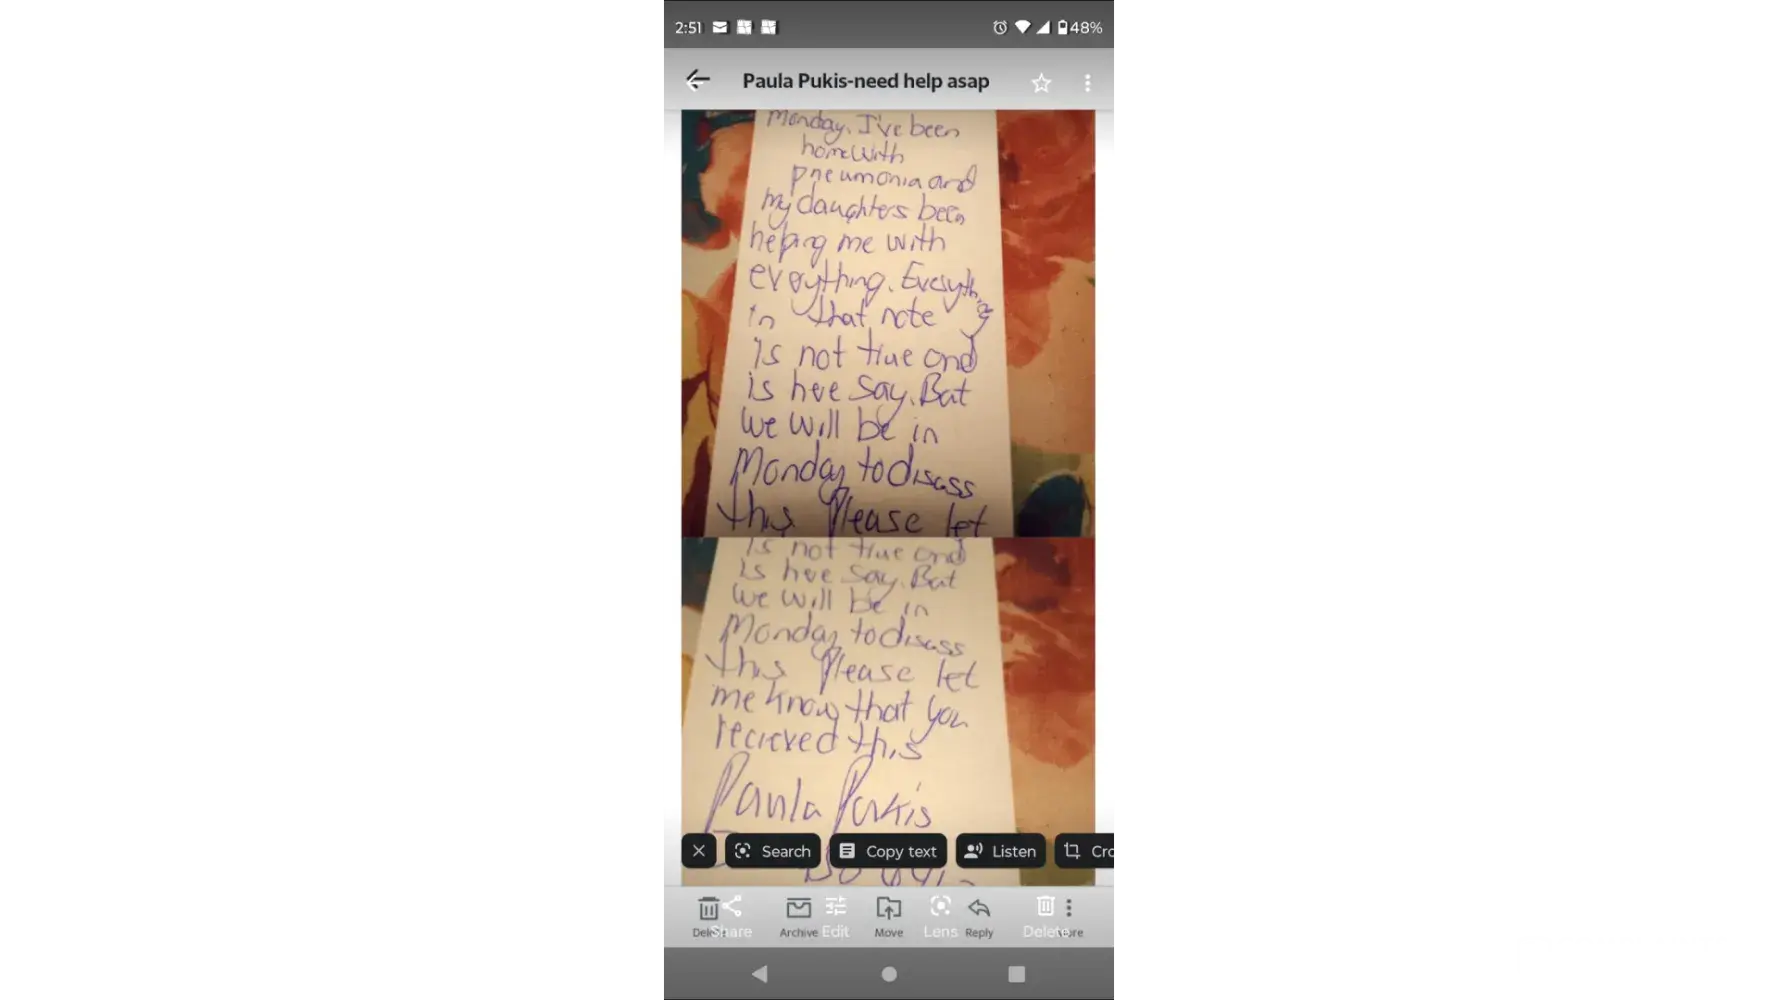 2:51
48%
Paula Pukis-need help asap
Monday. I've been
home with
pneumonia and
my daughters been
helping me with
everything. Everything
in that note
is not true and
is here say. But
we will be in
Monday to discuss
this Please let
is not true and
is here say. But
we will be in
Monday to discuss
this Please let
me know that you
recieved this
Paula Pukis
Search
Copy text
Listen
Cro
Delete
Share
Archive
Edit
Move
Lens
Reply
Delete
More